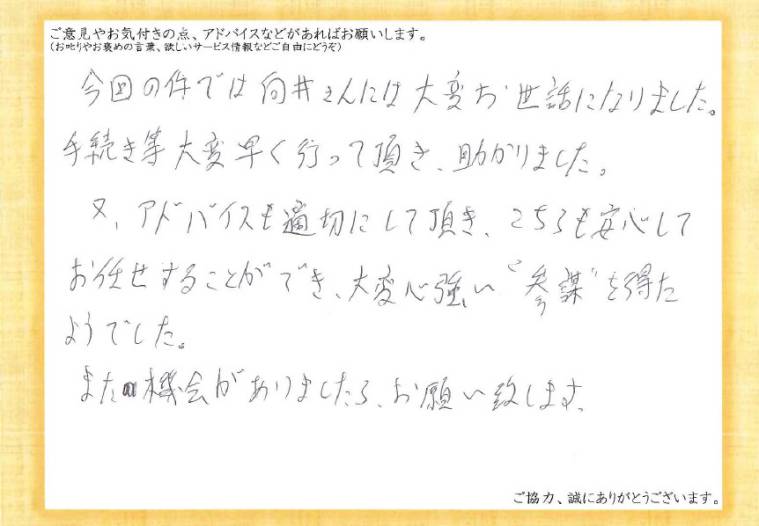 ご意見やお気付きの点、アドバイスなどがあればお願いします。
(お叱りやお褒めの言葉、欲しいサービス情報などご自由にどうぞ)
今回の件では向井さんには大変お世話になりました。
手続き等大変早く行って頂き、助かりました。
又、アドバイスも適切にして頂き、こちらも安心して
お任せすることができ、大変心強い“参謀”を得た
ようでした。
また機会がありましたら、お願い致します。
ご協力、誠にありがとうございます。